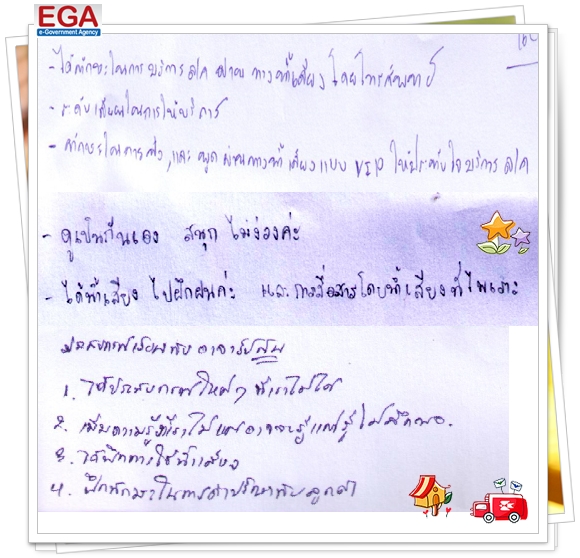 EGA
e-Government Agency
- ได้ทักษะในการบริการ ผ่านทางน้ำเสียง โดยโทรศัพท์
- ระดับเสียงในการให้บริการ
- ทักษะในการฟัง, และ พูด ผ่านทางน้ำเสียงแบบ VIP ให้ประทับใจบริการ
- ดูเป็นกันเอง สนุก ไม่ง่วงค่ะ
- ได้น้ำเสียง ไปฝึกฝนค่ะ และการสื่อสารโดยน้ำเสียงที่ไพเราะ
ประสบการณ์เรียนกับ อาจารย์
1. ได้ประสบการณ์ใหม่ๆ ที่เราไม่ได้
2. เพิ่มความรู้ที่เราไม่ อาจจะรู้แต่รู้ไม่ลึกพอ.
3. ได้ฝึกการใช้น้ำเสียง
4. ฝึกทักษะในการให้คำปรึกษากับลูกค้า